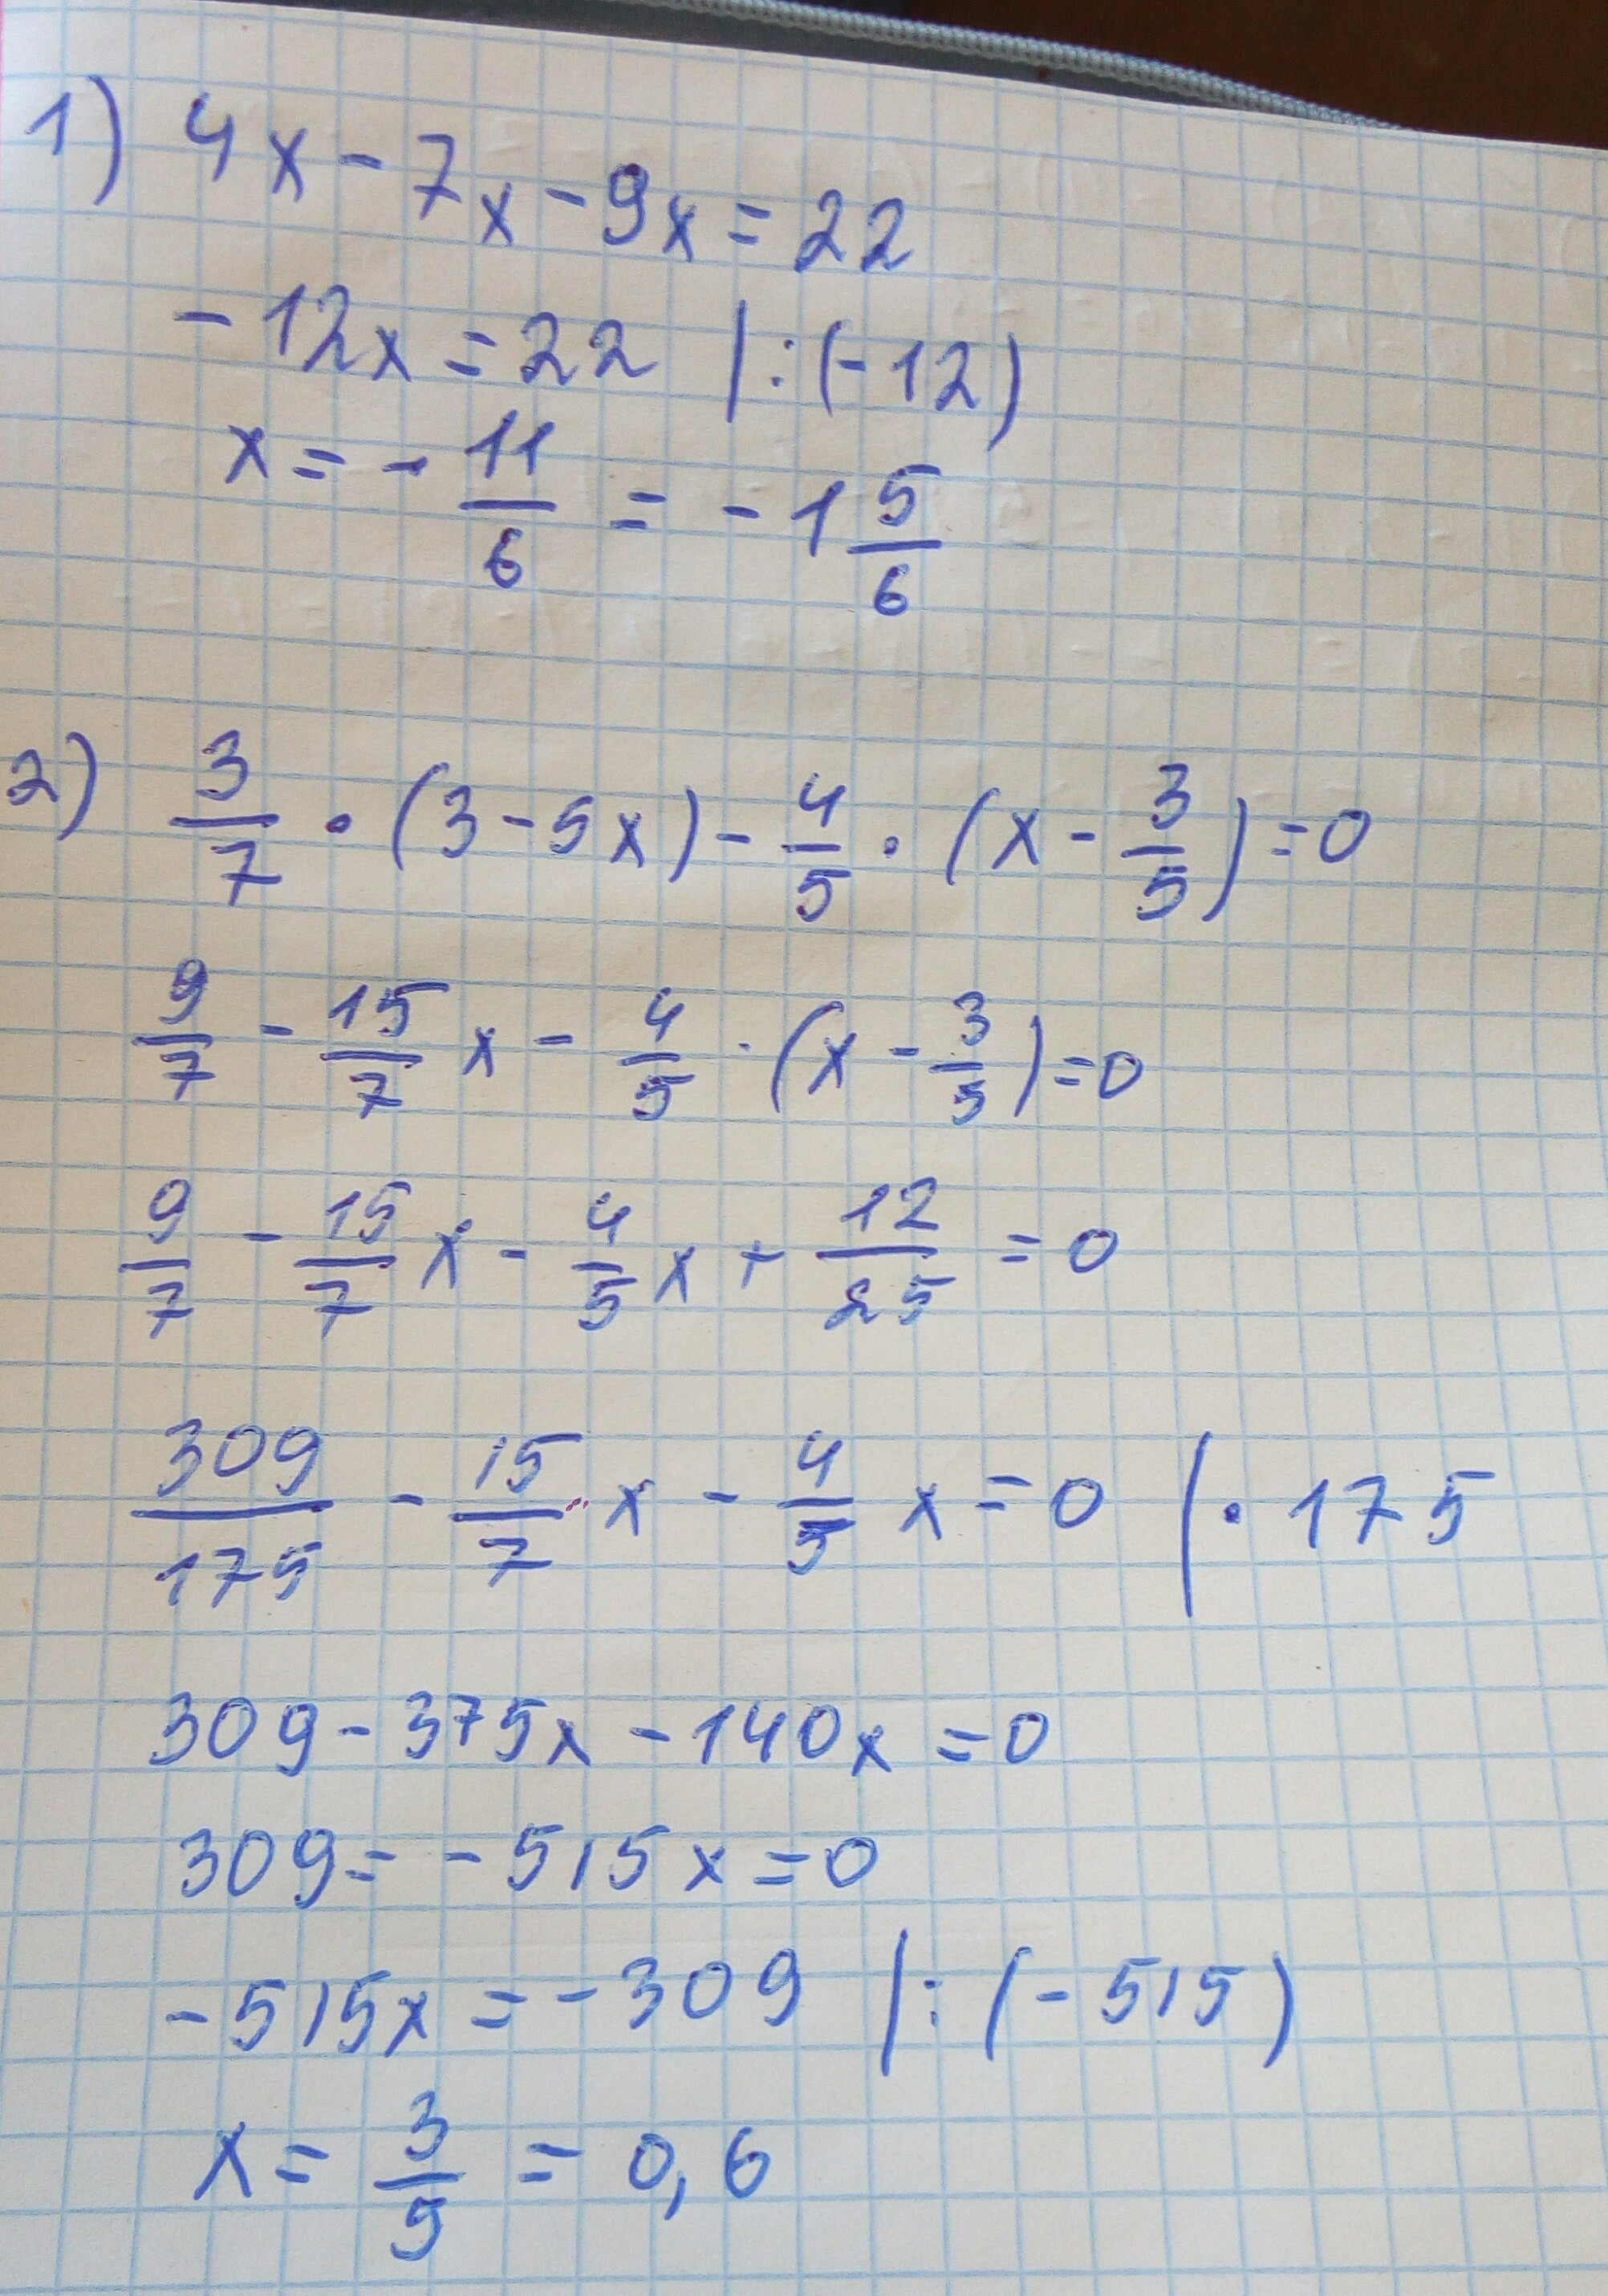 1) 4x - 7x - 9x = 22
- 12x = 22 | : (-12)
x = - 11/6 = - 1 5/6
2) 3/7 · (3 - 5x) - 4/5 · (x - 3/5) = 0
9/7 - 15/7 x - 4/5 · (x - 3/5) = 0
9/7 - 15/7 x - 4/5 x + 12/25 = 0
309/175 - 15/7 x - 4/5 x = 0 | · 175
309 - 375x - 140x = 0
309 = - 515x = 0
- 515x = - 309 | : (- 515)
x = 3/5 = 0,6